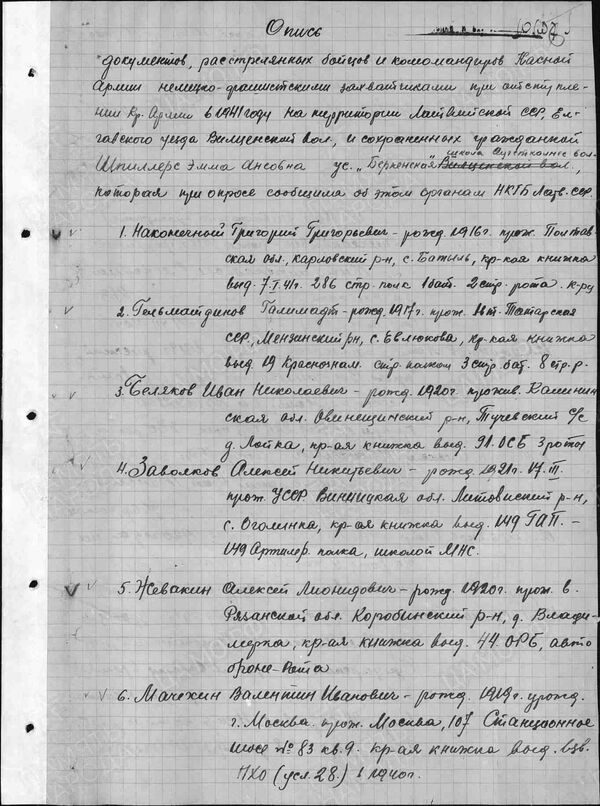 Опись
документов, расстрелянных бойцов и командиров Касной
Армии немецко-фашистскими захватчиками при отступле-
нии Кр. Армии в 1941 году на территории Латвийской ССР, Ел-
гавского уезда Вилценской вол., и сохраненных гражданкой
школа
Шпиллерс Эмма Ансовна ус. „Беркенской Вилценской вол.,
которая при опросе сообщила об этом органам НКГБ Латв. ССР.
1. Наконечный Григорий Григорьевич - рожд. 1916г. прож. Полтав
ская обл., карловский р-н, с. Батыль, кр-кая книжка
выд. 7/I 41г. 286 стр. полк 1 бат. 2 стр. рота.
2. Гельмайдинов Галимадт - рожд. 1917г. прож. Татарская
ССР, Мензинский рн, с. Евлюкова, кр-кая книжка
выд 19 Краснознам. стр. полком 3 стр. бат. 8 стр. р.
3. Беляков Иван Николаевич - рожд. 1920г. прожив. Калинин
ская обл. Овинещинский р-н, Тучевский с/с
д. Лойка, кр-ая книжка выд. 91. ОСБ 3 роты
4. Заволков Алексей Никитьевич - рожд. 1921г. 17. III.
прож. УССР Винницкая обл. Литовиский р-н,
с. Оголинка, кр-ая книжка выд. 149 ГАП. -
149 Артилер. полка, школой МНС.
5. Жевакин Алексей Лионидович - рожд. 1920г. прож. в
Рязанской обл. Коробинский р-н, д. Влади-
мерка, кр-ая книжка выд. 44. ОРБ, авто
броне-рота
6. Мачехин Валентин Иванович - рожд. 1919г. урожд.
г. Москва. прож. Москва, 107 Станционное
шосе № 83 кв. 9. кр-ая книжка выд. взв.
ПХО (усл. 28.) в 1940г.